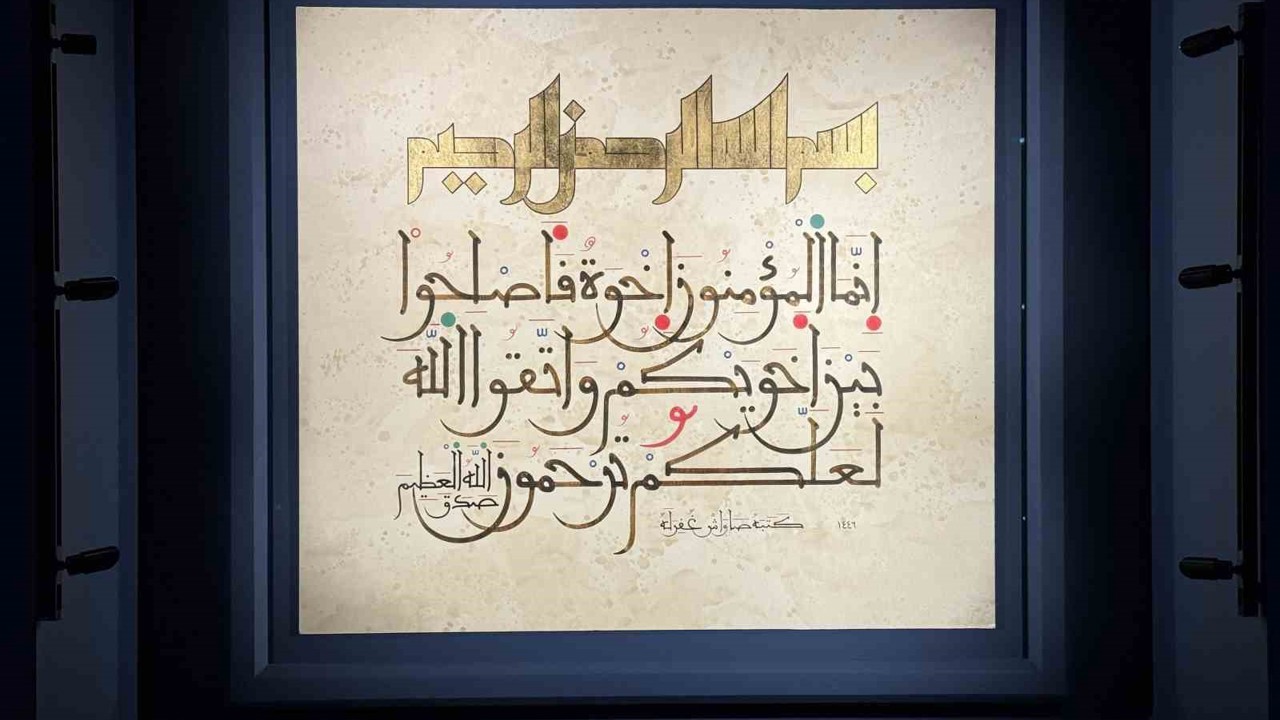 بسم الله الرحمن الرحيم
إنّما المؤمنون إخوة فأصلحوا
بين أخويكم واتّقوا اللّه
لعلّكم ترحمون
صدق اللّه العظيم
كتبه صاواش غفر له ١٤٤٦